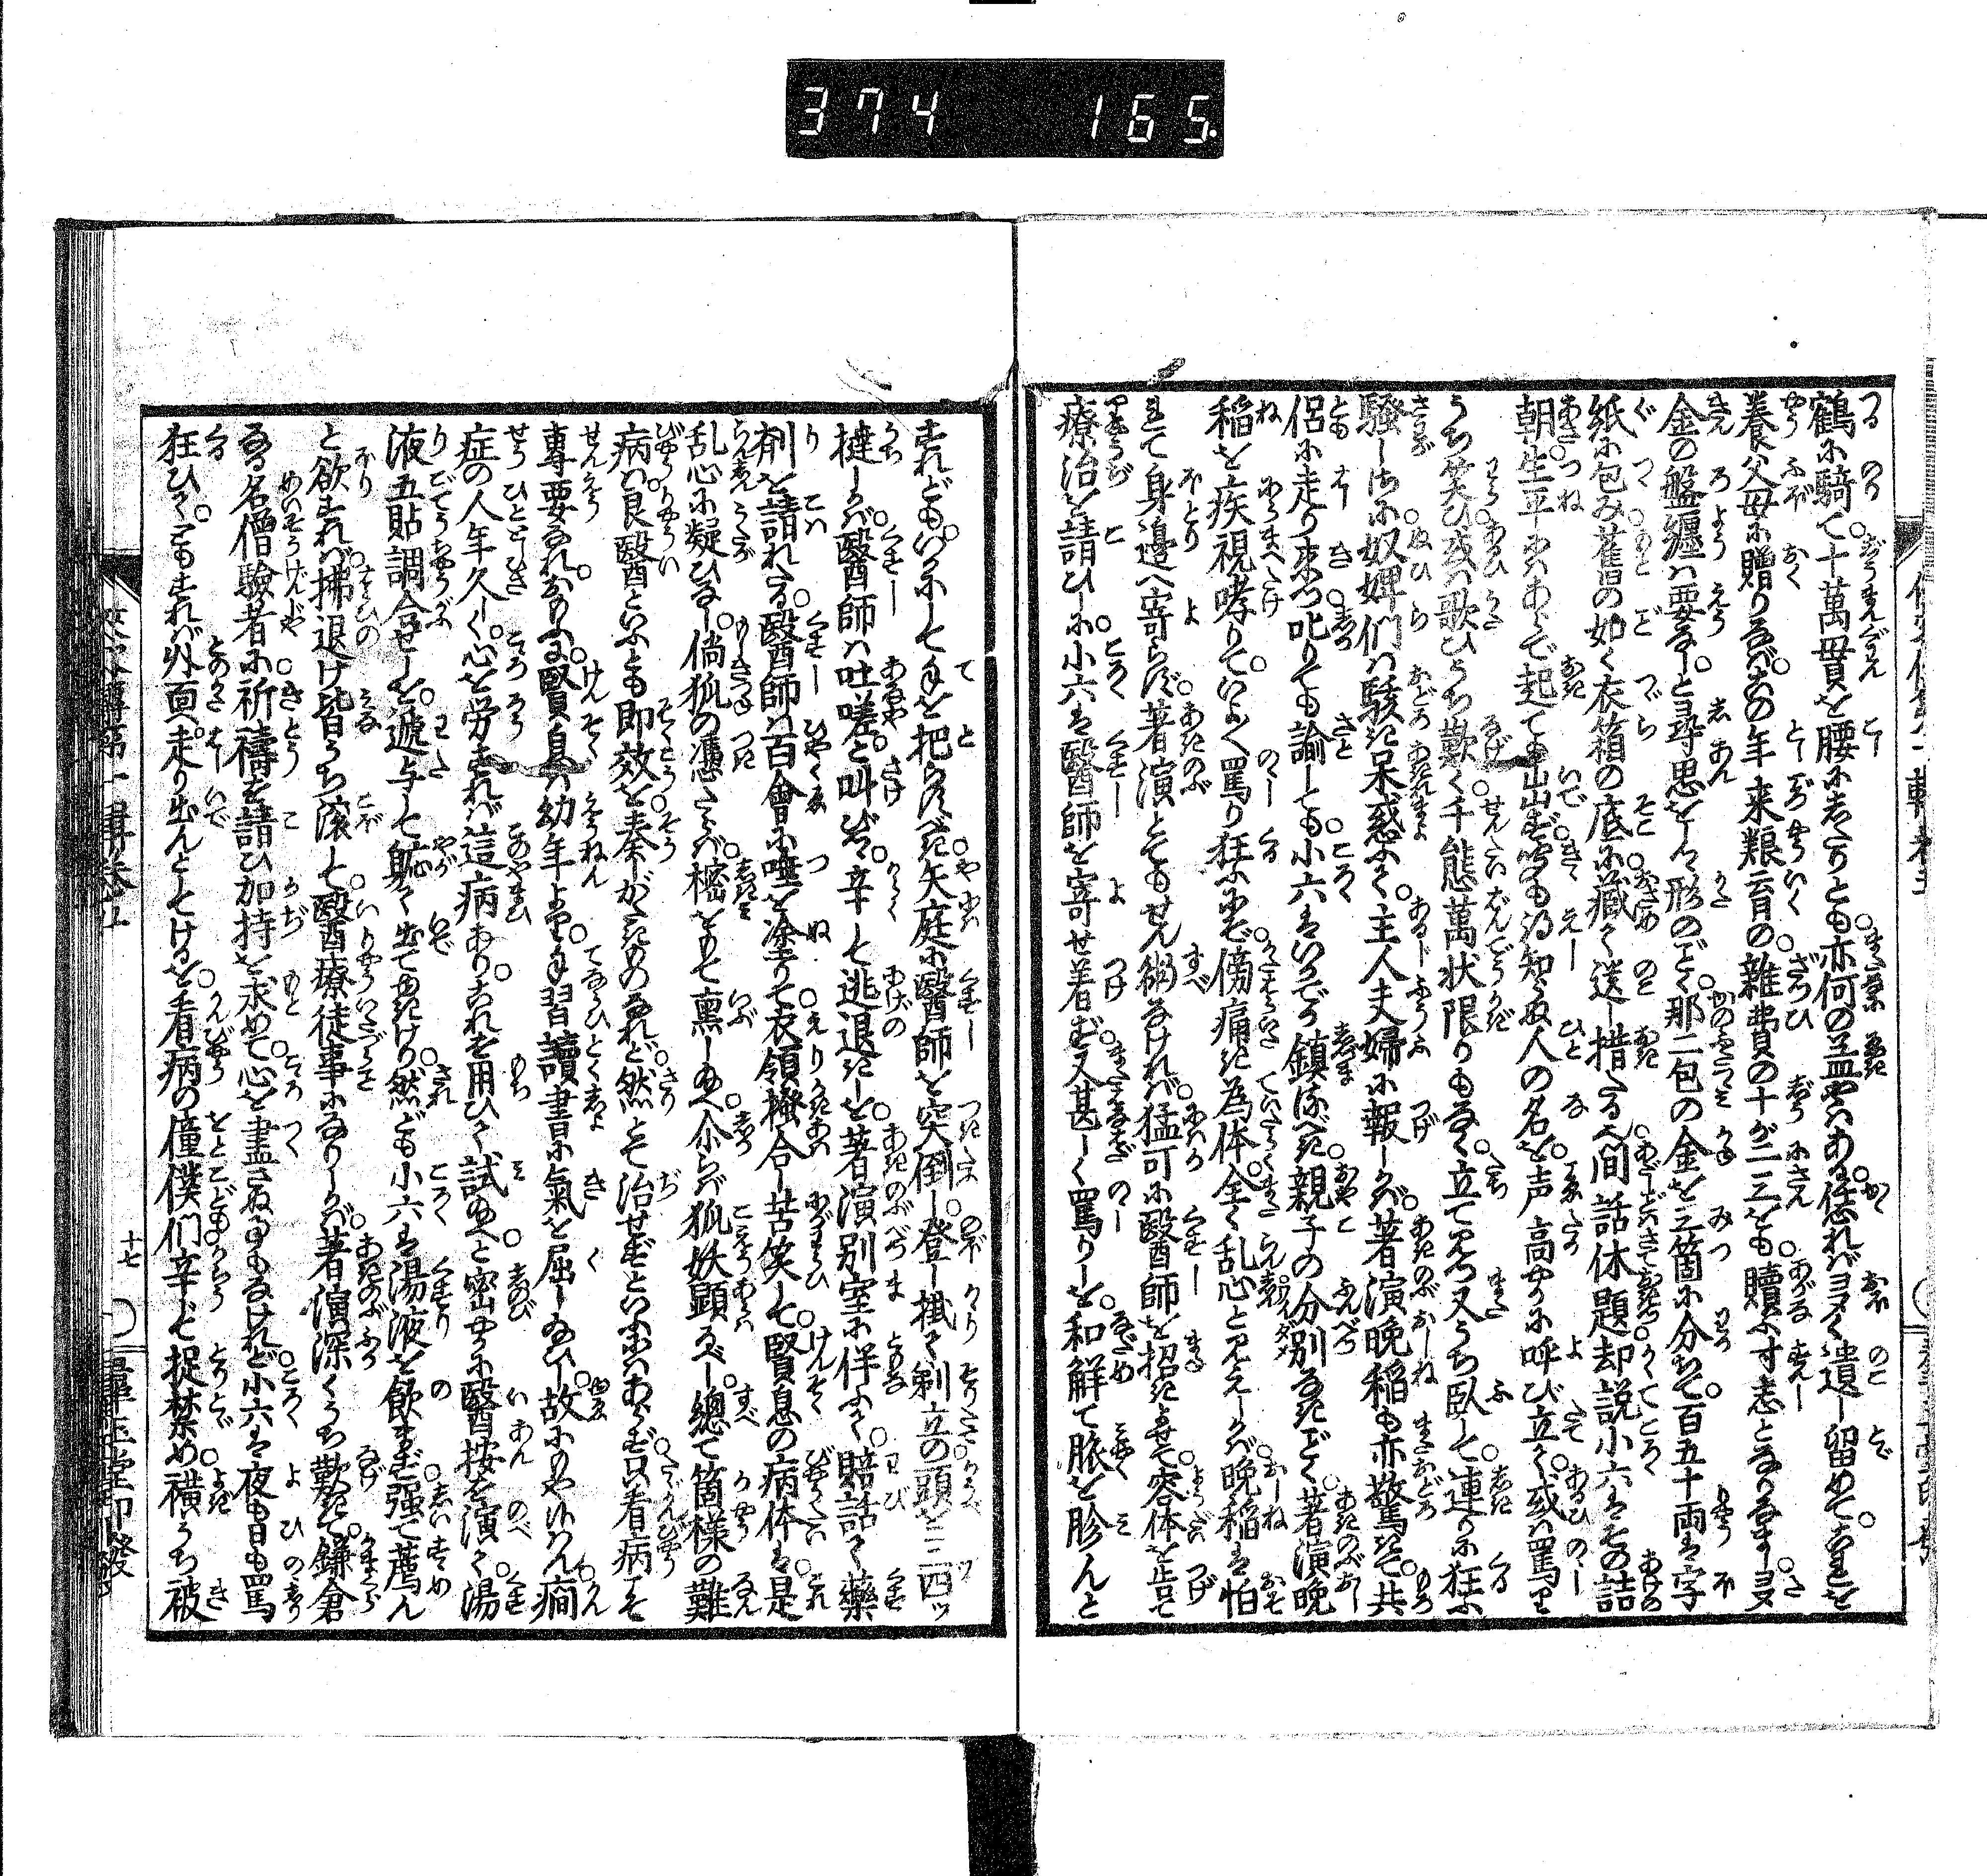 374 165.
鶴に騎て十萬貫を腰にすとも亦何の益やはある恁ればヨヌく遺し留めてこれを
養父母に贈りなばこの年来粮育の雑費の十が二三をも贖ふ寸志となりなましヨヌ
金の盤纏は要なしと尋思をしつゝ形のごとく那二包の金を三箇に分ちて百五十両は字
紙に包み舊の如く衣箱の底に藏めて送し措たる間話休題却説小六はその詰
朝生平にはあらで起ても出ず〇もえ知らぬ人の名を声高やかに呼び立て或は罵り
うち笑ひ或は歌ひうち歎く千態萬状限りもなく立て見つ又うち臥して連りに狂ふ
騒しさに奴婢們は駭き呆惑ふて主人夫婦に報しかば著演晩稲も亦驚きて共
侶に走り来つ叱りても諭しても小六はいかでか鎮るべき親子の分別なきごとく著演晩
稲を疾視哮りていよゝ罵り狂ふにぞ傍痛き為体全く乱心と見えしかば晩稲は怕
れて身邊へ寄らず著演とてもせん術なければ猛可に醫師を招きよせて容体を告て
療治を請ひしに小六は醫師を寄せ着ず又甚しく罵りしを和解て脈を胗んと
すれどもいかにして手を把らすべき矢庭に醫師を突倒し登し掛て剃立の頭を三四ツ
撻しかば醫師は吐嗟と叫びつゝ辛して逃退きしを著演別室に伴ふて賠話て藥
剤を請れたる醫師は百會に唾を塗りて衣領掻合し苦笑して賢息の病体は是
乱心に疑ひなし倘狐の憑たらば樒をもて熏し給へ尓らば狐妖顕るべし總て箇様の難
病は良醫といふとも即效を奏しがたきものなれど然とて治せずといふにはあらず只看病こそ
專要なれおもふに賢息は幼年より手習讀書に氣を屈し給ひし故にもや候はん癇
症の人年久しく心を労すれば這病あり〇これを用ひて試給へと密やかに醫按を演て湯
液五貼調合せしを遞与して軈て出てゆきけり然ども小六は湯液を飲まず強て薦ん
と欲すれば拂退け皆うち滾して醫療徒事になりしかば著演深くうち歎きて鎌倉
なる名僧驗者に祈禱を請ひ加持を求めて心を盡さぬ事もなけれど小六は夜も日も罵
狂ひてともすれば外面へ走り出んとしてけるを看病の僮僕們辛じて捉禁め横うち被
十七